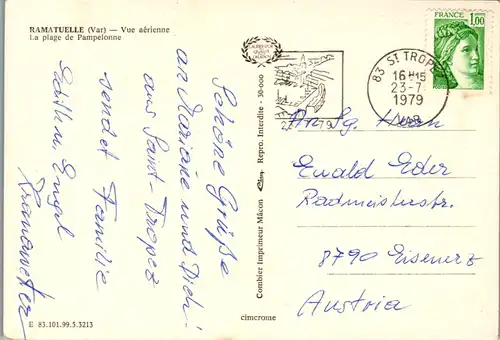 RAMATUELLE (Var) — Vue aérienne
La plage de Pampelonne
Schöne Grüße
an Mariane und Dich
aus Saint-Tropez
sendet Familie
Edith u. Engel
E 83.101.99.5.3213
Combier Imprimeur Mâcon Repro. Interdite - 30-000
cimcrome
83 ST TROPEZ
16 H 15
23-7
1979
VAR
FRANCE
1,00
An Sg. Herrn
Ewald Eder
Radmeisterstr.
8790 Eisenerz
Austria